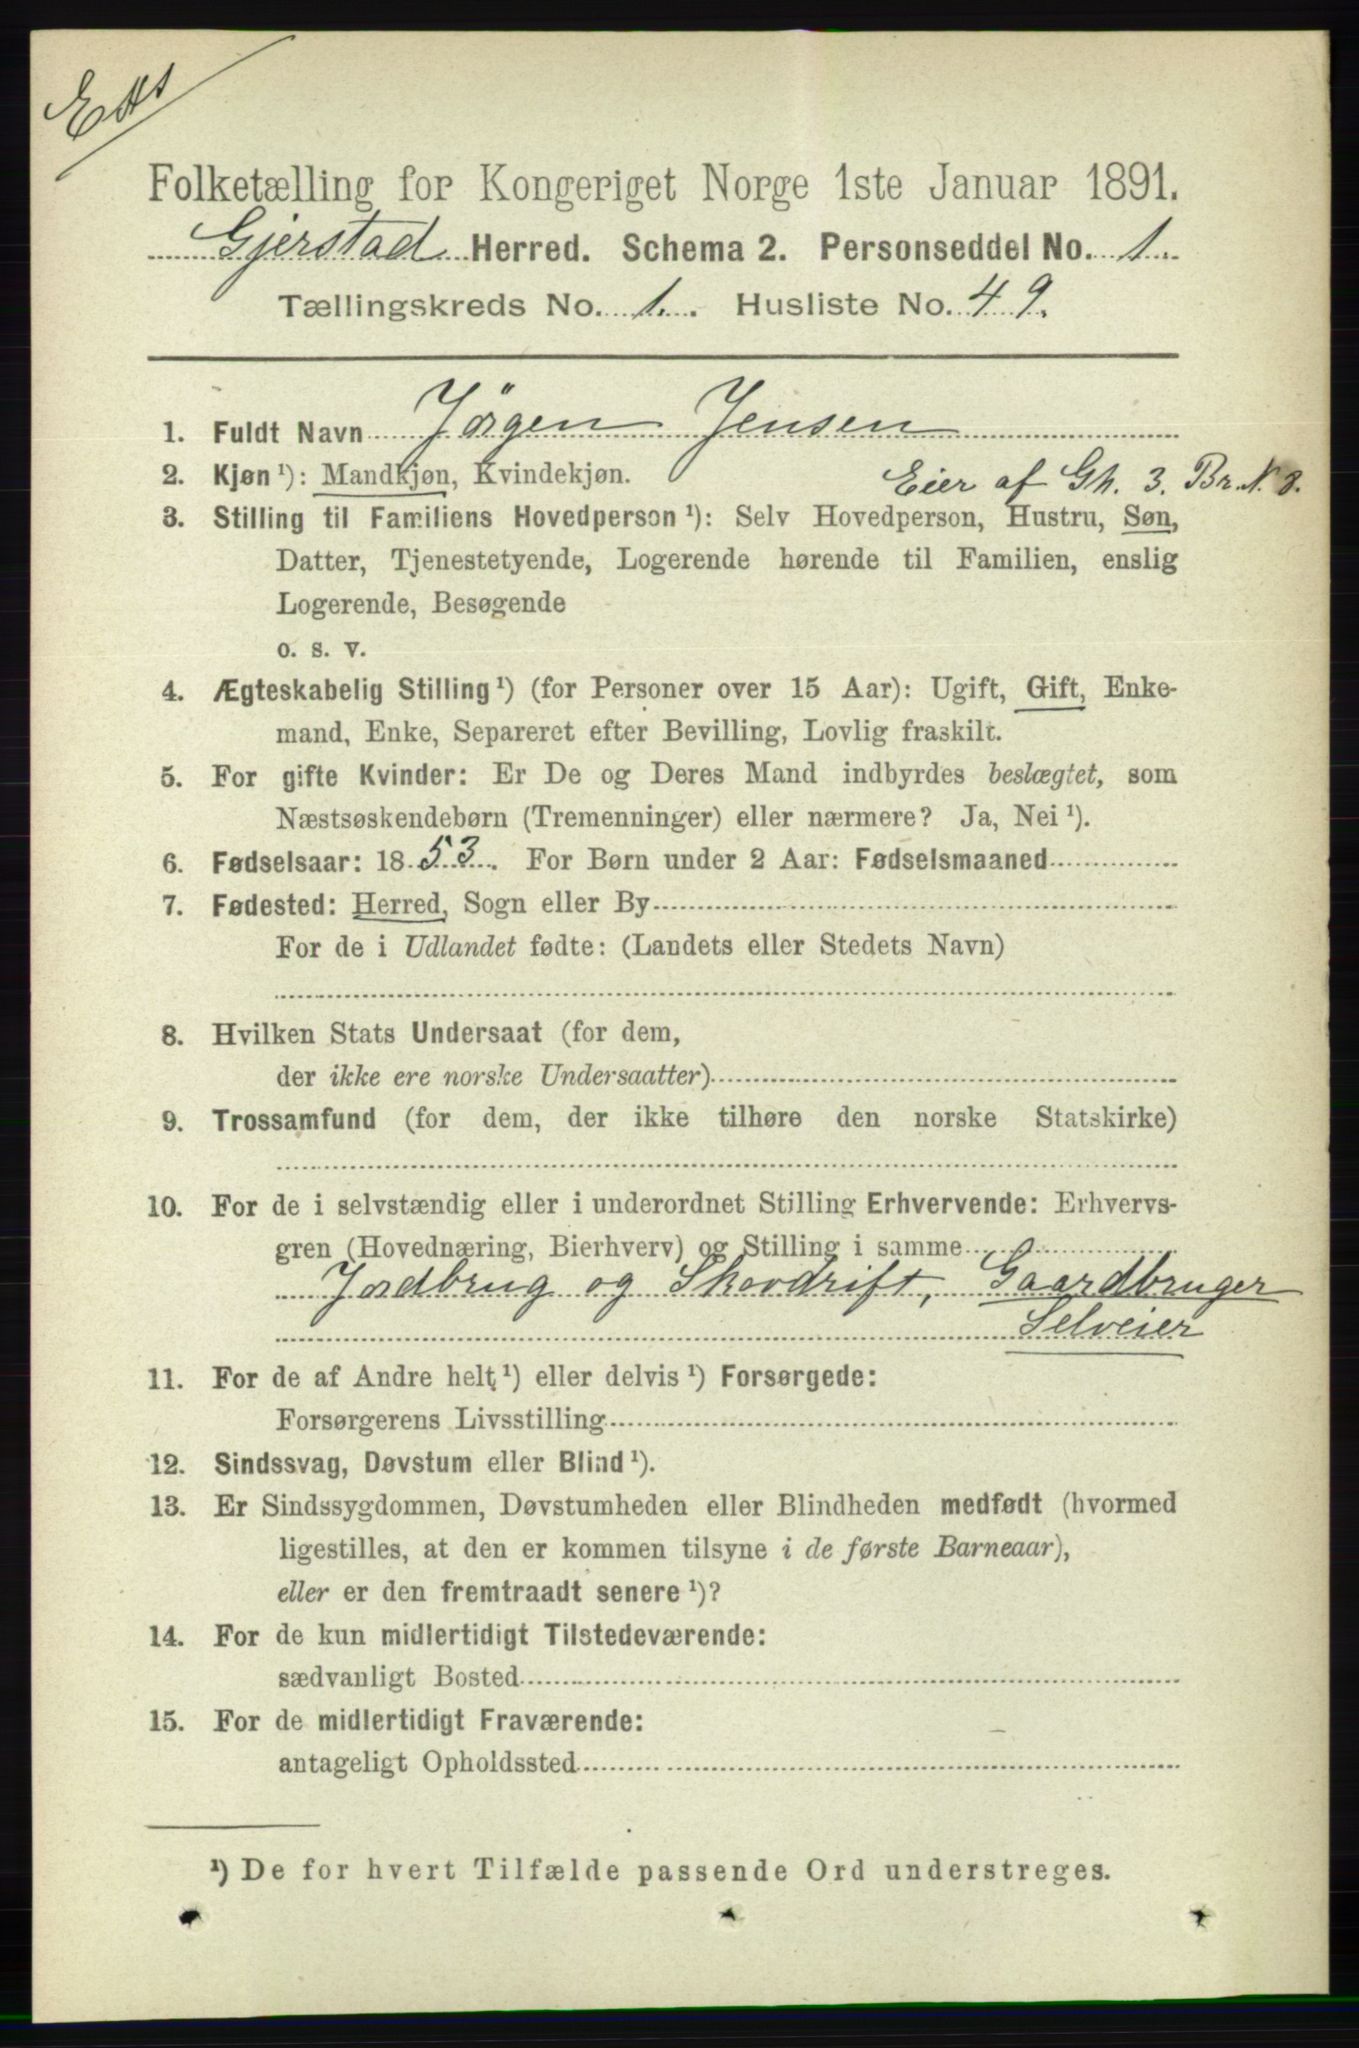 Folketælling for Kongeriget Norge 1ste Januar 1891.
Gjerstad Herred. Schema 2. Personseddel No. 1.
Tællingskreds No. 1. Husliste No. 49.
1. Fuldt Navn Jörgen Jensen
2. Kjøn ¹): Mandkjøn, Kvindekjøn.
Eier af Gh. 3. Br. N. 8.
3. Stilling til Familiens Hovedperson ¹): Selv Hovedperson, Hustru, Søn,
Datter, Tjenestetyende, Logerende hørende til Familien, enslig
Logerende, Besøgende
o. s. v.
4. Ægteskabelig Stilling ¹) (for Personer over 15 Aar): Ugift, Gift, Enke-
mand, Enke, Separeret efter Bevilling, Lovlig fraskilt.
5. For gifte Kvinder: Er De og Deres Mand indbyrdes beslægtet, som
Næstsøskendebørn (Tremenninger) eller nærmere? Ja, Nei ¹).
6. Fødselsaar: 1853. For Børn under 2 Aar: Fødselsmaaned
7. Fødested: Herred, Sogn eller By
For de i Udlandet fødte: (Landets eller Stedets Navn)
8. Hvilken Stats Undersaat (for dem,
der ikke ere norske Undersaatter)
9. Trossamfund (for dem, der ikke tilhøre den norske Statskirke)
10. For de i selvstændig eller i underordnet Stilling Erhvervende: Erhvervs-
gren (Hovednæring, Bierhverv) og Stilling i samme
Jordbrug og Skovdrift, Gaardbruger
Selveier
11. For de af Andre helt ¹) eller delvis ¹) Forsørgede:
Forsørgerens Livsstilling
12. Sindssvag, Døvstum eller Blind ¹).
13. Er Sindssygdommen, Døvstumheden eller Blindheden medfødt (hvormed
ligestilles, at den er kommen tilsyne i de første Barneaar),
eller er den fremtraadt senere ¹)?
14. For de kun midlertidigt Tilstedeværende:
sædvanligt Bosted
15. For de midlertidigt Fraværende:
antageligt Opholdssted
¹) De for hvert Tilfælde passende Ord understreges.